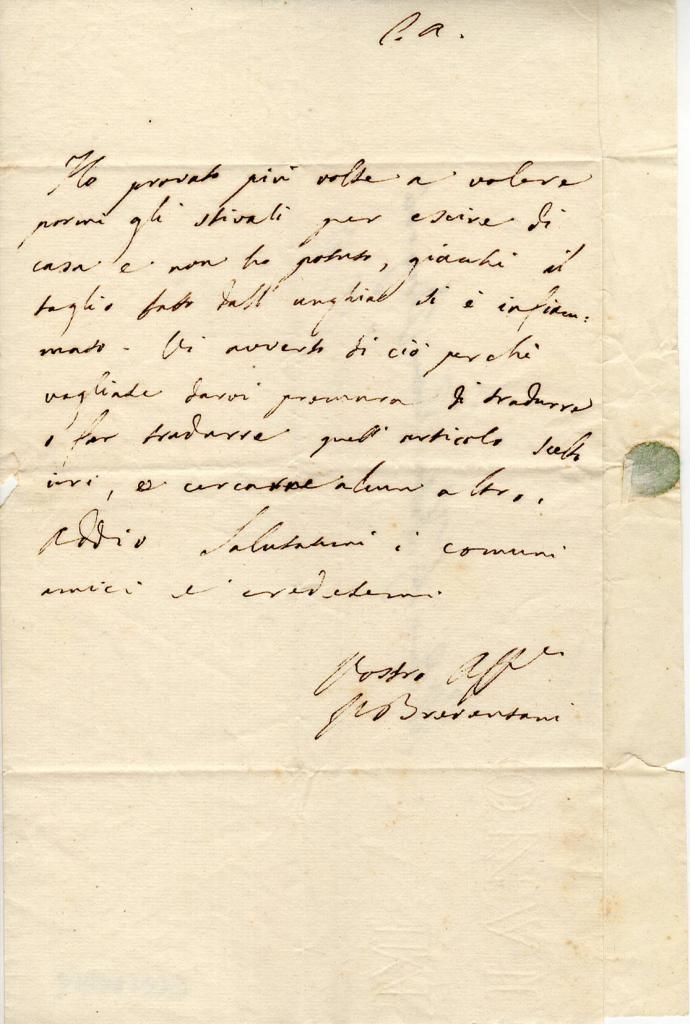 C. A.
Ho provato più volte a volere
pormi gli stivali per escire di
casa e non ho potuto, giacchè il
taglio fatto dall'unghia si è infiam-
mato. Vi avverto di ciò perchè
vogliate darvi premura di tradurre
o far tradurre quell'articolo scelto
ieri, e cercarne alcun altro.
Addio Salutatemi i comuni
amici e credetemi
Vostro Aff.e
Breventani